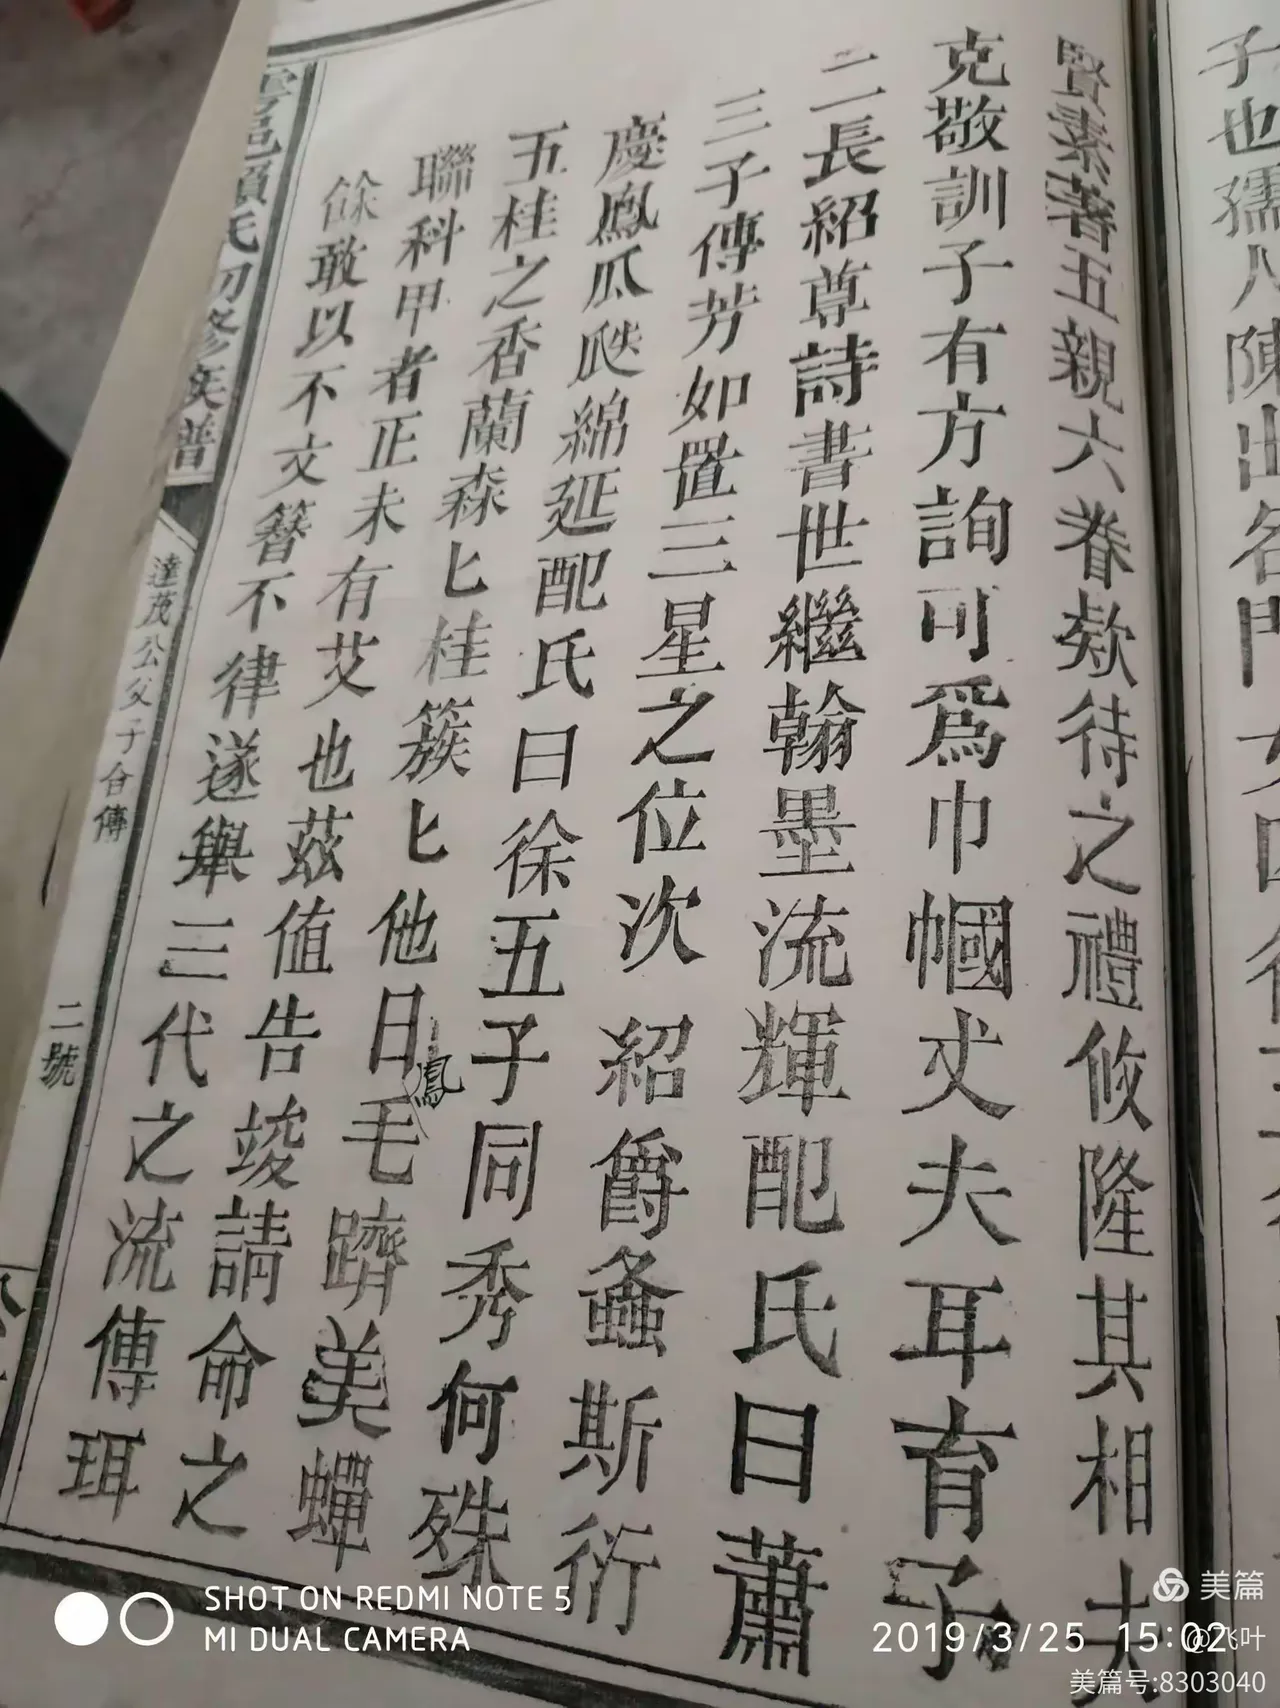 子也孺人陳出名門女
賢素著五親六眷欸待之禮攸隆其相夫
克敬訓子有方詢可爲巾幗丈夫耳育子
二長紹尊詩書世繼翰墨流輝配氏曰蕭
三子傳芳如置三星之位次紹爵螽斯衍
慶鳳瓜瓞綿延配氏曰徐五子同秀何殊
五桂之香蘭森匕桂簇匕他日鳳毛躋美蟬
聯科甲者正未有艾也茲值告竣請命之
餘敢以不文簪不律遂舉三代之流傳珥
氏初修族譜
達茂公父子合傳
二號
SHOT ON REDMI NOTE 5
MI DUAL CAMERA
2019/3/25 15:02
美篇
@飞叶
美篇号:8303040